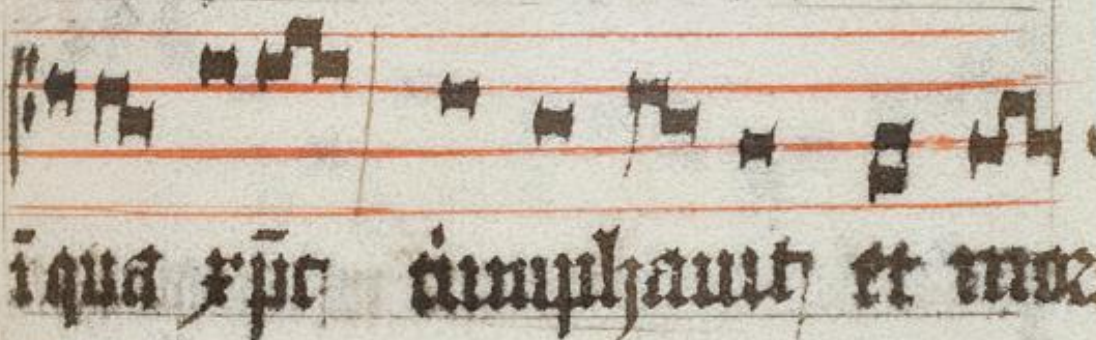 ī qua xp̄c triumphauit et mor